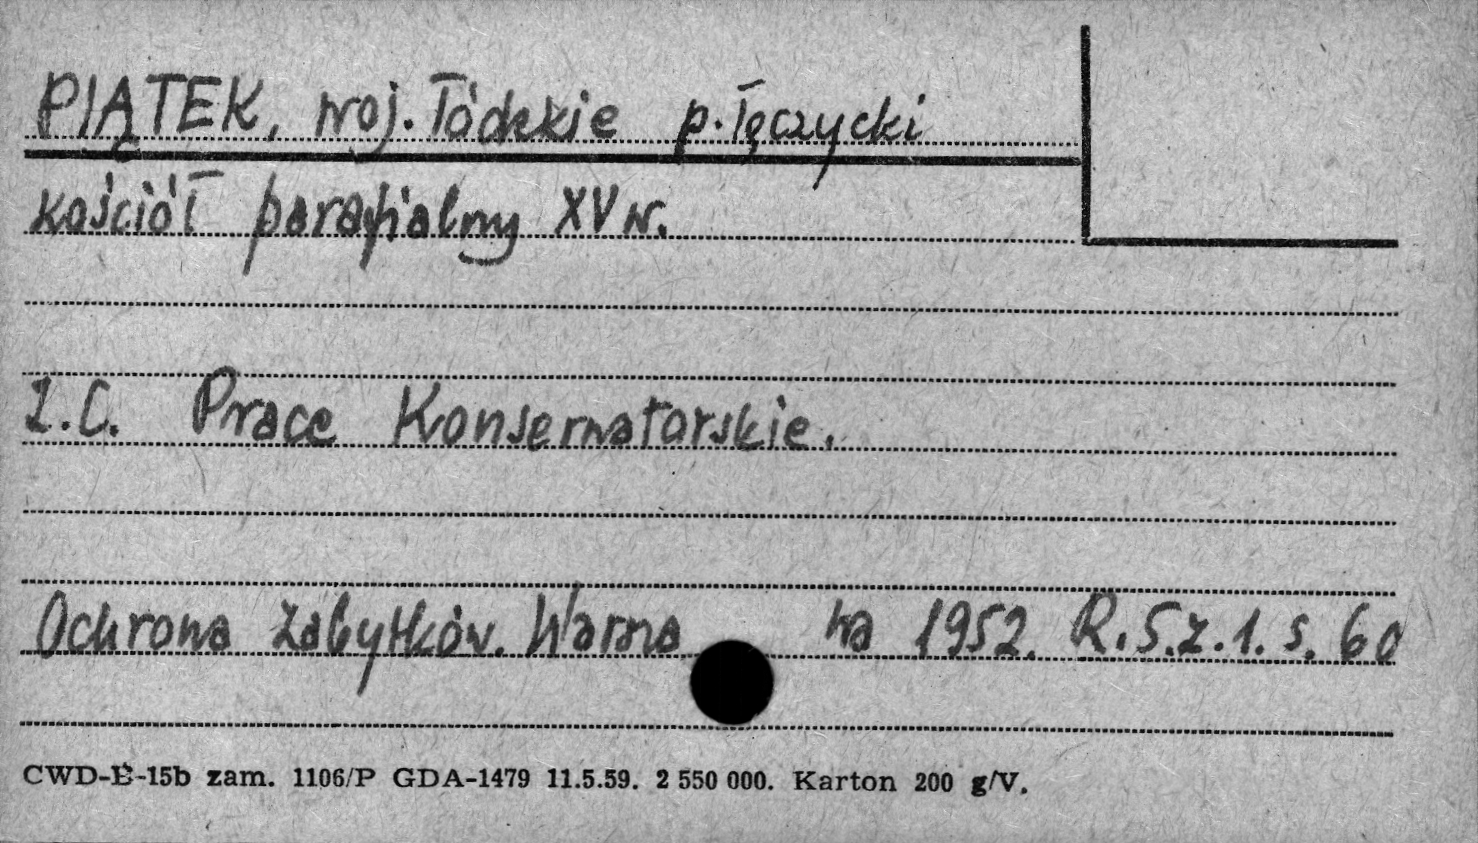 PIĄTEK, woj. łódzkie p. łęczycki
kościół parafialny XV w.
Z.C. Prace Konserwatorskie.
Ochrona Zabytków. W a 1952. R. 5. z. 1. s. 60
CWD-E-15b zam. 1106/P GDA-1479 11.5.59. 2 550 000. Karton 200 g/V.